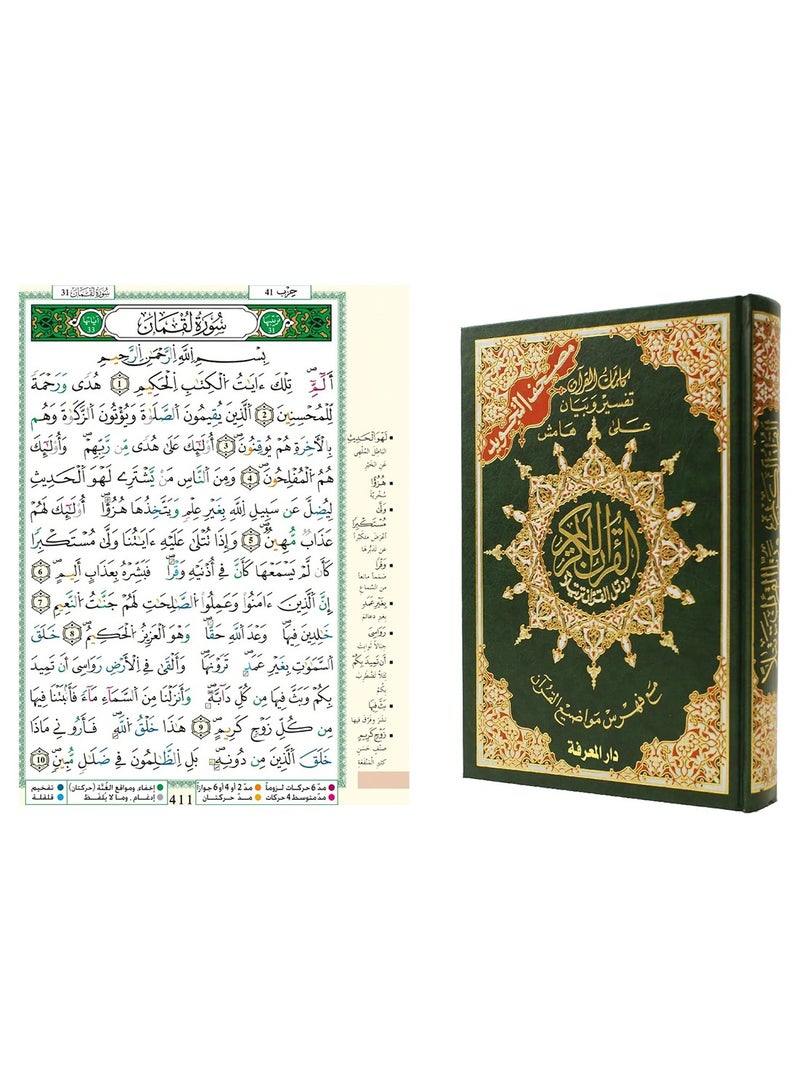 سُورَةُ لُقْمَان 31
حِزْب 41
ترتيبها 31
سُورَةُ لُقْمَان
آياتها 33
بِسْمِ اللَّهِ الرَّحْمَٰنِ الرَّحِيمِ
الٓمٓ تِلْكَ ءَايَٰتُ الْكِتَٰبِ الْحَكِيمِ 1 هُدًى وَرَحْمَةً
لِّلْمُحْسِنِينَ 2 الَّذِينَ يُقِيمُونَ الصَّلَوٰةَ وَيُؤْتُونَ الزَّكَوٰةَ وَهُم
بِالْآخِرَةِ هُمْ يُوقِنُونَ 3 أُوْلَٰئِكَ عَلَىٰ هُدًى مِّن رَّبِّهِمْ وَأُوْلَٰئِكَ
هُمُ الْمُفْلِحُونَ 4 وَمِنَ النَّاسِ مَن يَشْتَرِي لَهْوَ الْحَدِيثِ
لِيُضِلَّ عَن سَبِيلِ اللَّهِ بِغَيْرِ عِلْمٍ وَيَتَّخِذَهَا هُزُوًا أُوْلَٰئِكَ لَهُمْ
عَذَابٌ مُّهِينٌ 5 وَإِذَا تُتْلَىٰ عَلَيْهِ ءَايَٰتُنَا وَلَّىٰ مُسْتَكْبِرًا
كَأَن لَّمْ يَسْمَعْهَا كَأَنَّ فِي أُذُنَيْهِ وَقْرًا فَبَشِّرْهُ بِعَذَابٍ أَلِيمٍ 6
إِنَّ الَّذِينَ ءَامَنُوا وَعَمِلُوا الصَّٰلِحَٰتِ لَهُمْ جَنَّٰتُ النَّعِيمِ 7
خَٰلِدِينَ فِيهَا وَعْدَ اللَّهِ حَقًّا وَهُوَ الْعَزِيزُ الْحَكِيمُ 8 خَلَقَ
السَّمَٰوَٰتِ بِغَيْرِ عَمَدٍ تَرَوْنَهَا وَأَلْقَىٰ فِي الْأَرْضِ رَوَٰسِيَ أَن تَمِيدَ
بِكُمْ وَبَثَّ فِيهَا مِن كُلِّ دَآبَّةٍ وَأَنزَلْنَا مِنَ السَّمَآءِ مَآءً فَأَنبَتْنَا فِيهَا
مِن كُلِّ زَوْجٍ كَرِيمٍ 9 هَٰذَا خَلْقُ اللَّهِ فَأَرُونِي مَاذَا
خَلَقَ الَّذِينَ مِن دُونِهِ بَلِ الظَّٰلِمُونَ فِي ضَلَٰلٍ مُّبِينٍ 10
لَهْوَ الْحَدِيثِ
الباطل المُلهي
عن الخير
هُزُوًا
سُخرية
وَلَّى
مُسْتَكْبِرًا
أعرض متكبرًا
عن تدبرها
وَقْرًا
صممًا مانعًا
من السماع
بِغَيْرِ عَمَدٍ
بغير دعائم
رَوَاسِيَ
جبالاً ثوابت
أَن تَمِيدَ بِكُمْ
لئلا تضطرب
بكم
بَثَّ فِيهَا
نشر وفرق فيها
زَوْجٍ كَرِيمٍ
صنف حسن
كثير المنفعة
مدّ 6 حركات لزوماً مدّ 2 أو 4 أو 6 جوازاً إخفاء، ومواقع الغُنَّة (حركتان) تفخيم
مدّ متوسط 4 حركات مدّ حركتان 411 إدغام، وما لا يُلفَظ قلقلة
مصحف التجويد
كلمات القرآن
تفسير وبيان
على هامش
القرآن الكريم
ورتل القرآن ترتيلا
مع فهرس مواضيع القرآن
دار المعرفة